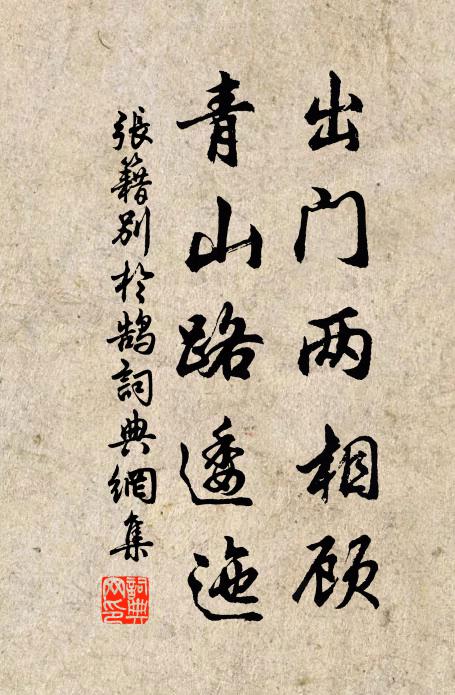 出门两相顾
青山路逶迤
張籍別於鵠詞典網集
詞典
网印